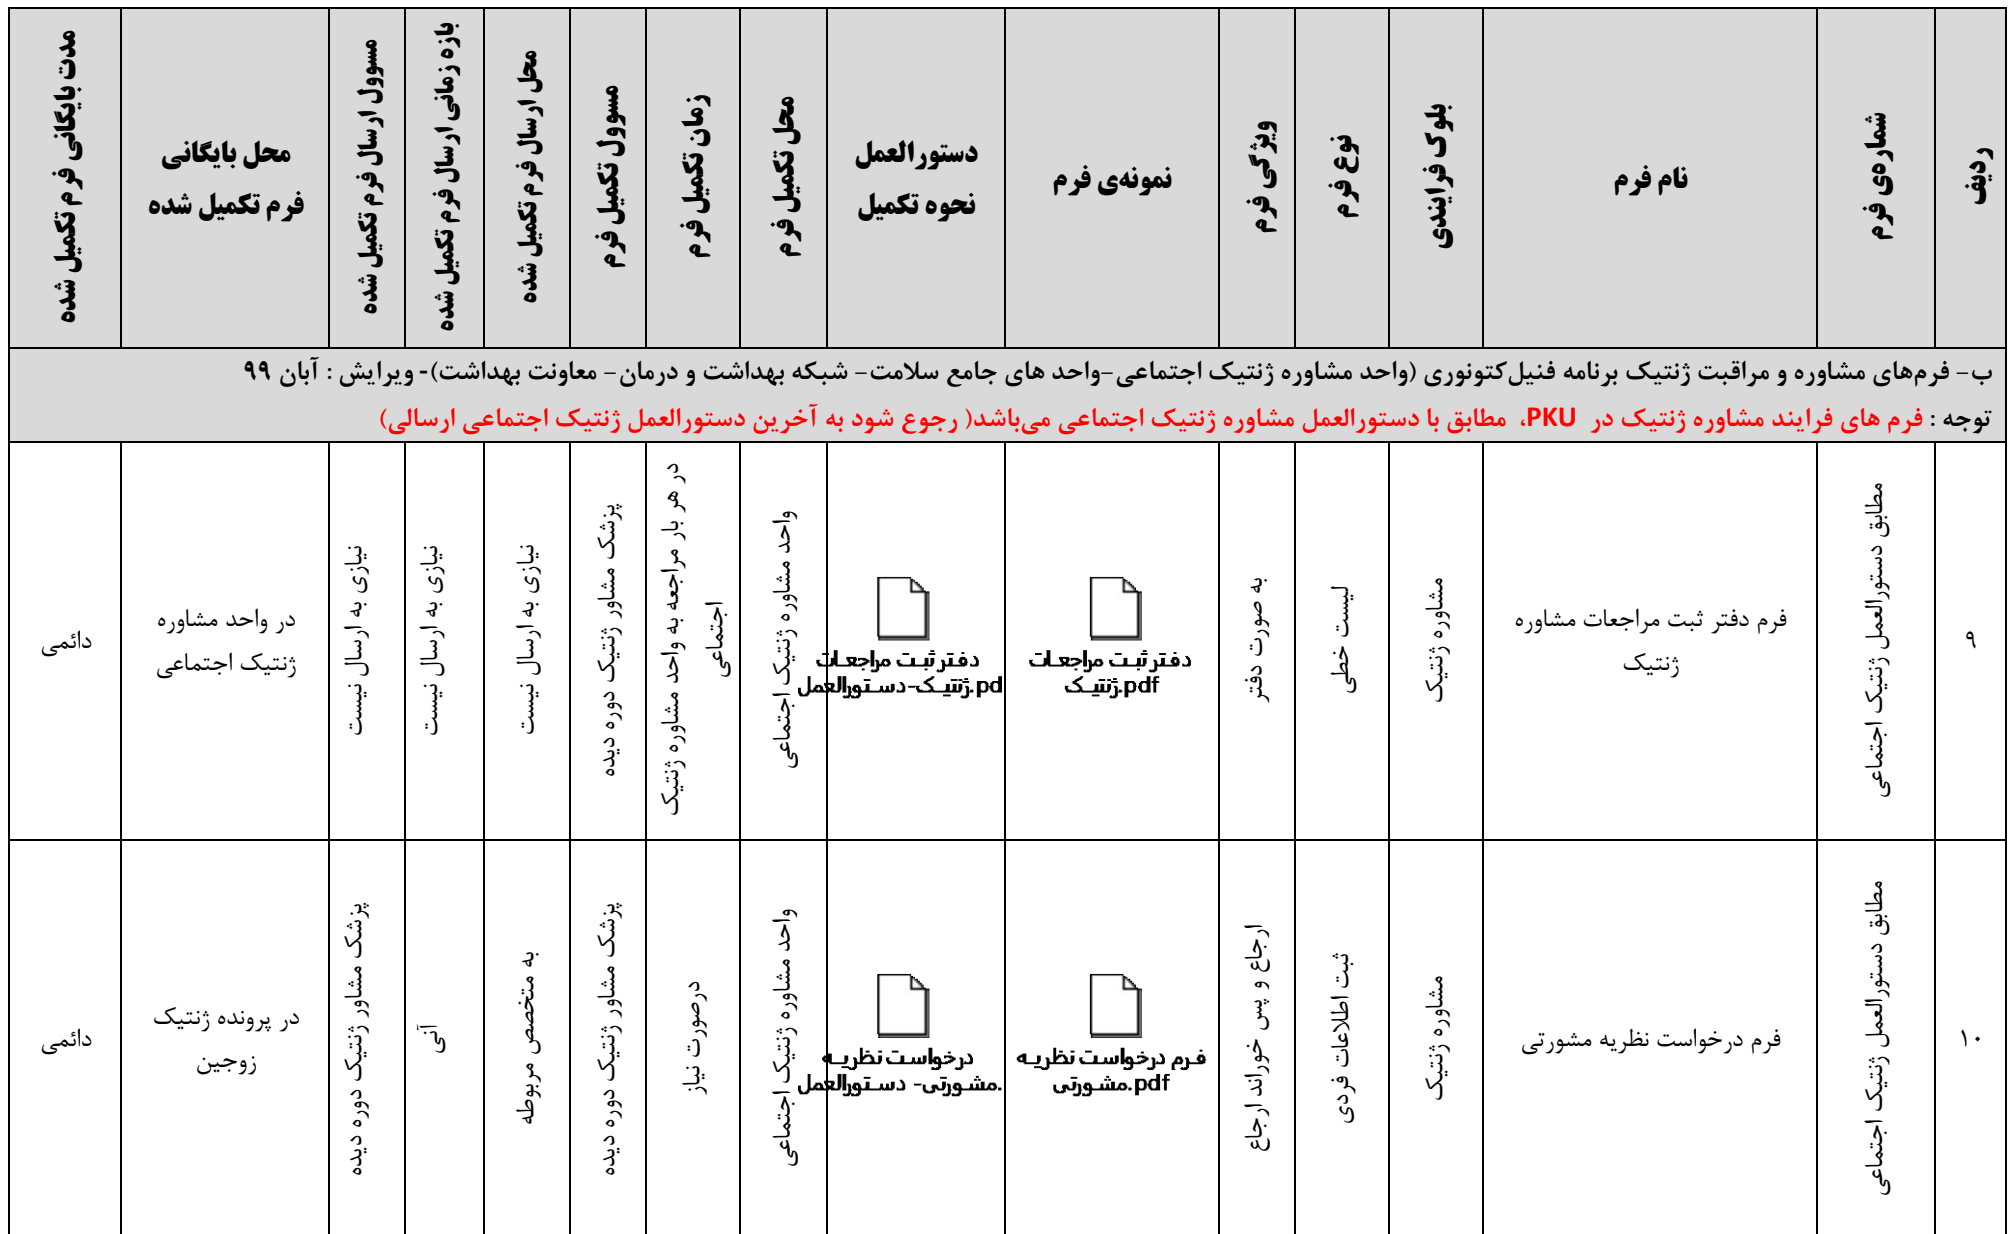 ردیف
شماره‌ی فرم
نام فرم
بلوک فرایندی
نوع فرم
ویژگی فرم
نمونه‌ی فرم
دستورالعمل
نحوه تکمیل
محل تکمیل فرم
زمان تکمیل فرم
مسوول تکمیل فرم
محل ارسال فرم تکمیل شده
بازه زمانی ارسال فرم تکمیل شده
مسوول ارسال فرم تکمیل شده
محل بایگانی
فرم تکمیل شده
مدت بایگانی فرم تکمیل شده
ب- فرم‌های مشاوره و مراقبت ژنتیک برنامه فنیل‌کتونوری (واحد مشاوره ژنتیک اجتماعی-واحد های جامع سلامت- شبکه بهداشت و درمان- معاونت بهداشت)- ویرایش : آبان ۹۹
توجه : فرم های فرایند مشاوره ژنتیک در PKU، مطابق با دستورالعمل مشاوره ژنتیک اجتماعی می‌باشد( رجوع شود به آخرین دستورالعمل ژنتیک اجتماعی ارسالی)
۹
مطابق دستورالعمل ژنتیک اجتماعی
فرم دفتر ثبت مراجعات مشاوره
ژنتیک
مشاوره ژنتیک
لیست خطی
به صورت دفتر
دفتر ثبت مراجعات
ژنتیک.pdf
دفتر ثبت مراجعات
ژنتیک-دستورالعمل.pd
واحد مشاوره ژنتیک اجتماعی
در هر بار مراجعه به واحد مشاوره ژنتیک
اجتماعی
پزشک مشاور ژنتیک دوره دیده
نیازی به ارسال نیست
نیازی به ارسال نیست
نیازی به ارسال نیست
در واحد مشاوره
ژنتیک اجتماعی
دائمی
۱۰
مطابق دستورالعمل ژنتیک اجتماعی
فرم درخواست نظریه مشورتی
مشاوره ژنتیک
ثبت اطلاعات فردی
ارجاع و پس خوراند ارجاع
فرم درخواست نظریه
مشورتی.pdf
درخواست نظریه
مشورتی- دستورالعمل.
واحد مشاوره ژنتیک اجتماعی
درصورت نیاز
پزشک مشاور ژنتیک دوره دیده
به متخصص مربوطه
آنی
پزشک مشاور ژنتیک دوره دیده
در پرونده ژنتیک
زوجین
دائمی